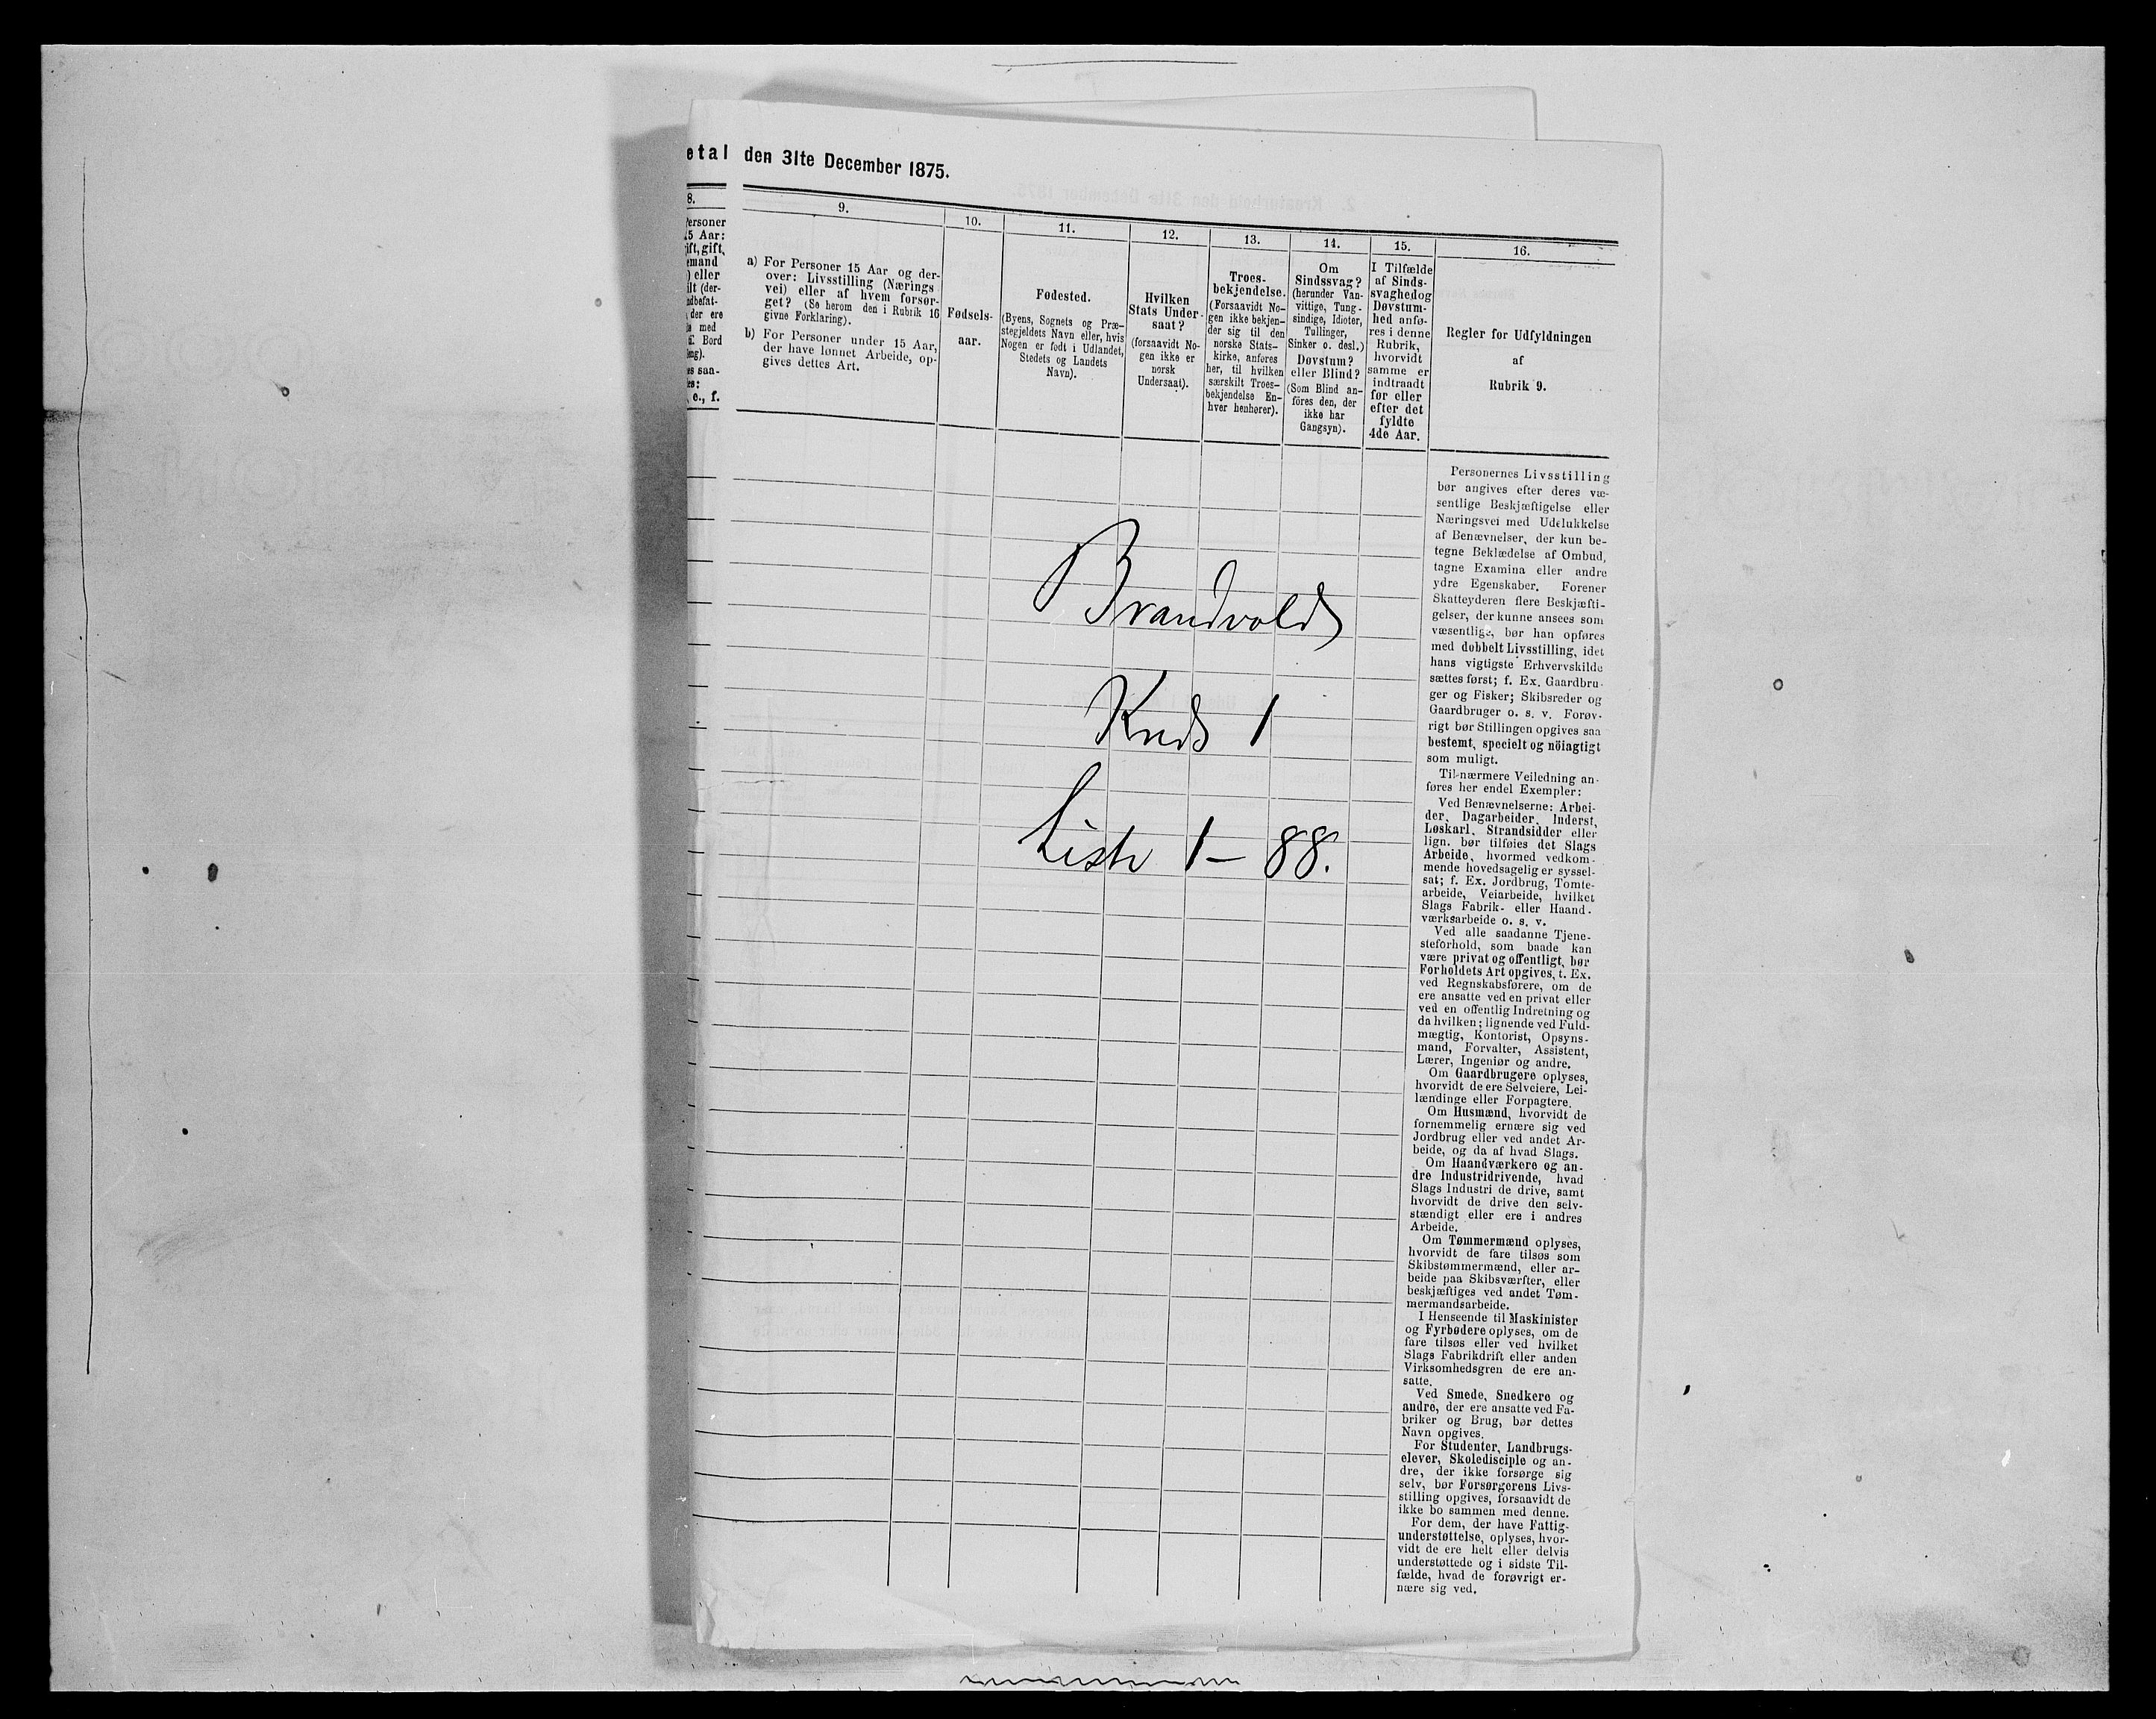 etal den 31te December 1875.
8.
Personer
15 Aar:
ift, gift,
emand
) eller
ilt (der-
der ere
med
Bord
es saa-
es:
e., f.
9.
a) For Personer 15 Aar og der-
over: Livsstilling (Nærings
vei) eller af hvem forsør-
get? (Se herom den i Rubrik 16
givne Forklaring).
b) For Personer under 15 Aar,
der have lønnet Arbeide, op-
gives dettes Art.
10.
Fødsels-
aar.
11.
Fødested.
(Byens, Sognets og Præ-
stegjeldets Navn eller, hvis
Nogen er født i Udlandet,
Stedets og Landets
Navn).
12.
Hvilken
Stats Under-
saat?
(forsaavidt No-
gen ikke er
norsk
Undersaat).
13.
Troes-
bekjendelse.
(Forsaavidt No-
gen ikke bekjen-
der sig til den
norske Stats-
kirke, anføres
her, til hvilken
særskilt Troes-
bekjendelse En-
hver henhører).
14.
Om
Sindssvag?
(herunder Van-
vittige, Tung-
sindige, Idioter,
Tullinger,
Sinker o. desl.)
Døvstum?
eller Blind?
(Som Blind an-
föres den, der
ikke har
Gangsyn).
15.
I Tilfælde
af Sinds-
svaghed og
Døvstum-
hed anfø-
res i denne
Rubrik,
hvorvidt
samme er
indtraadt
før eller
efter det
fyldte
4de Aar.
16.
Regler for Udfyldningen
af
Rubrik 9.
Brandvold
Kreds 1
Liste 1 – 88.
Personernes Livsstilling
bør angives efter deres væ-
sentlige Beskjæftigelse eller
Næringsvei med Udelukkelse
af Benævnelser, der kun be-
tegne Beklædelse af Ombud,
tagne Examina eller andre
ydre Egenskaber. Forener
Skatteyderen flere Beskjæfti-
gelser, der kunne ansees som
væsentlige, bør han opføres
med dobbelt Livsstilling, idet
hans vigtigste Erhvervskilde
sættes først; f. Ex. Gaardbru-
ger og Fisker; Skibsreder og
Gaardbruger o. s. v. Forøv-
rigt bør Stillingen opgives saa
bestemt, specielt og nöiagtigt
som muligt.
Til nærmere Veiledning an-
føres her endel Exempler:
Ved Benævnelserne: Arbei-
der, Dagarbeider, Inderst,
Løskarl, Strandsidder eller
lign. bør tilføies det Slags
Arbeide, hvormed vedkom-
mende hovedsagelig er syssel-
sat; f. Ex. Jordbrug, Tomte-
arbeide, Veiarbeide, hvilket
Slags Fabrik- eller Haand-
værksarbeide o. s. v.
Ved alle saadanne Tjene-
steforhold, som baade kan
være privat og offentligt, bør
Forholdets Art opgives, t. Ex.
ved Regnskabsførere, om de
ere ansatte ved en privat eller
ved en offentlig Indretning og
da hvilken; lignende ved Fuld-
mægtig, Kontorist, Opsyns-
mand, Forvalter, Assistent,
Lærer, Ingeniør og andre.
Om Gaardbrugere oplyses,
hvorvidt de ere Selveiere, Lei-
lændinge eller Forpagtere.
Om Husmænd, hvorvidt de
fornemmelig ernære sig ved
Jordbrug eller ved andet Ar-
beide, og da af hvad Slags.
Om Haandværkere og an-
dre Industridrivende, hvad
Slags Industri de drive, samt
hvorvidt de drive den selv-
stændigt eller ere i andres
Arbeide.
Om Tømmermænd oplyses,
hvorvidt de fare tilsøs som
Skibstømmermænd, eller ar-
beide paa Skibsværfter, eller
beskjæftiges ved andet Tøm-
mermandsarbeide.
I Henseende til Maskinister
og Fyrbødere oplyses, om de
fare tilsøs eller ved hvilket
Slags Fabrikdrift eller anden
Virksomhedsgren de ere an-
satte.
Ved Smede, Snedkere og
andre, der ere ansatte ved Fa-
briker og Brug, bør dettes
Navn opgives.
For Studenter, Landbrugs-
elever, Skoledisciple og an-
dre, der ikke forsørge sig
selv, bør Forsørgerens Livs-
stilling opgives, forsaavidt de
ikke bo sammen med denne.
For dem, der have Fattig-
understøttelse, oplyses, hvor-
vidt de ere helt eller delvis
understøttede og i sidste Til-
fælde, hvad de forøvrigt er-
nære sig ved.